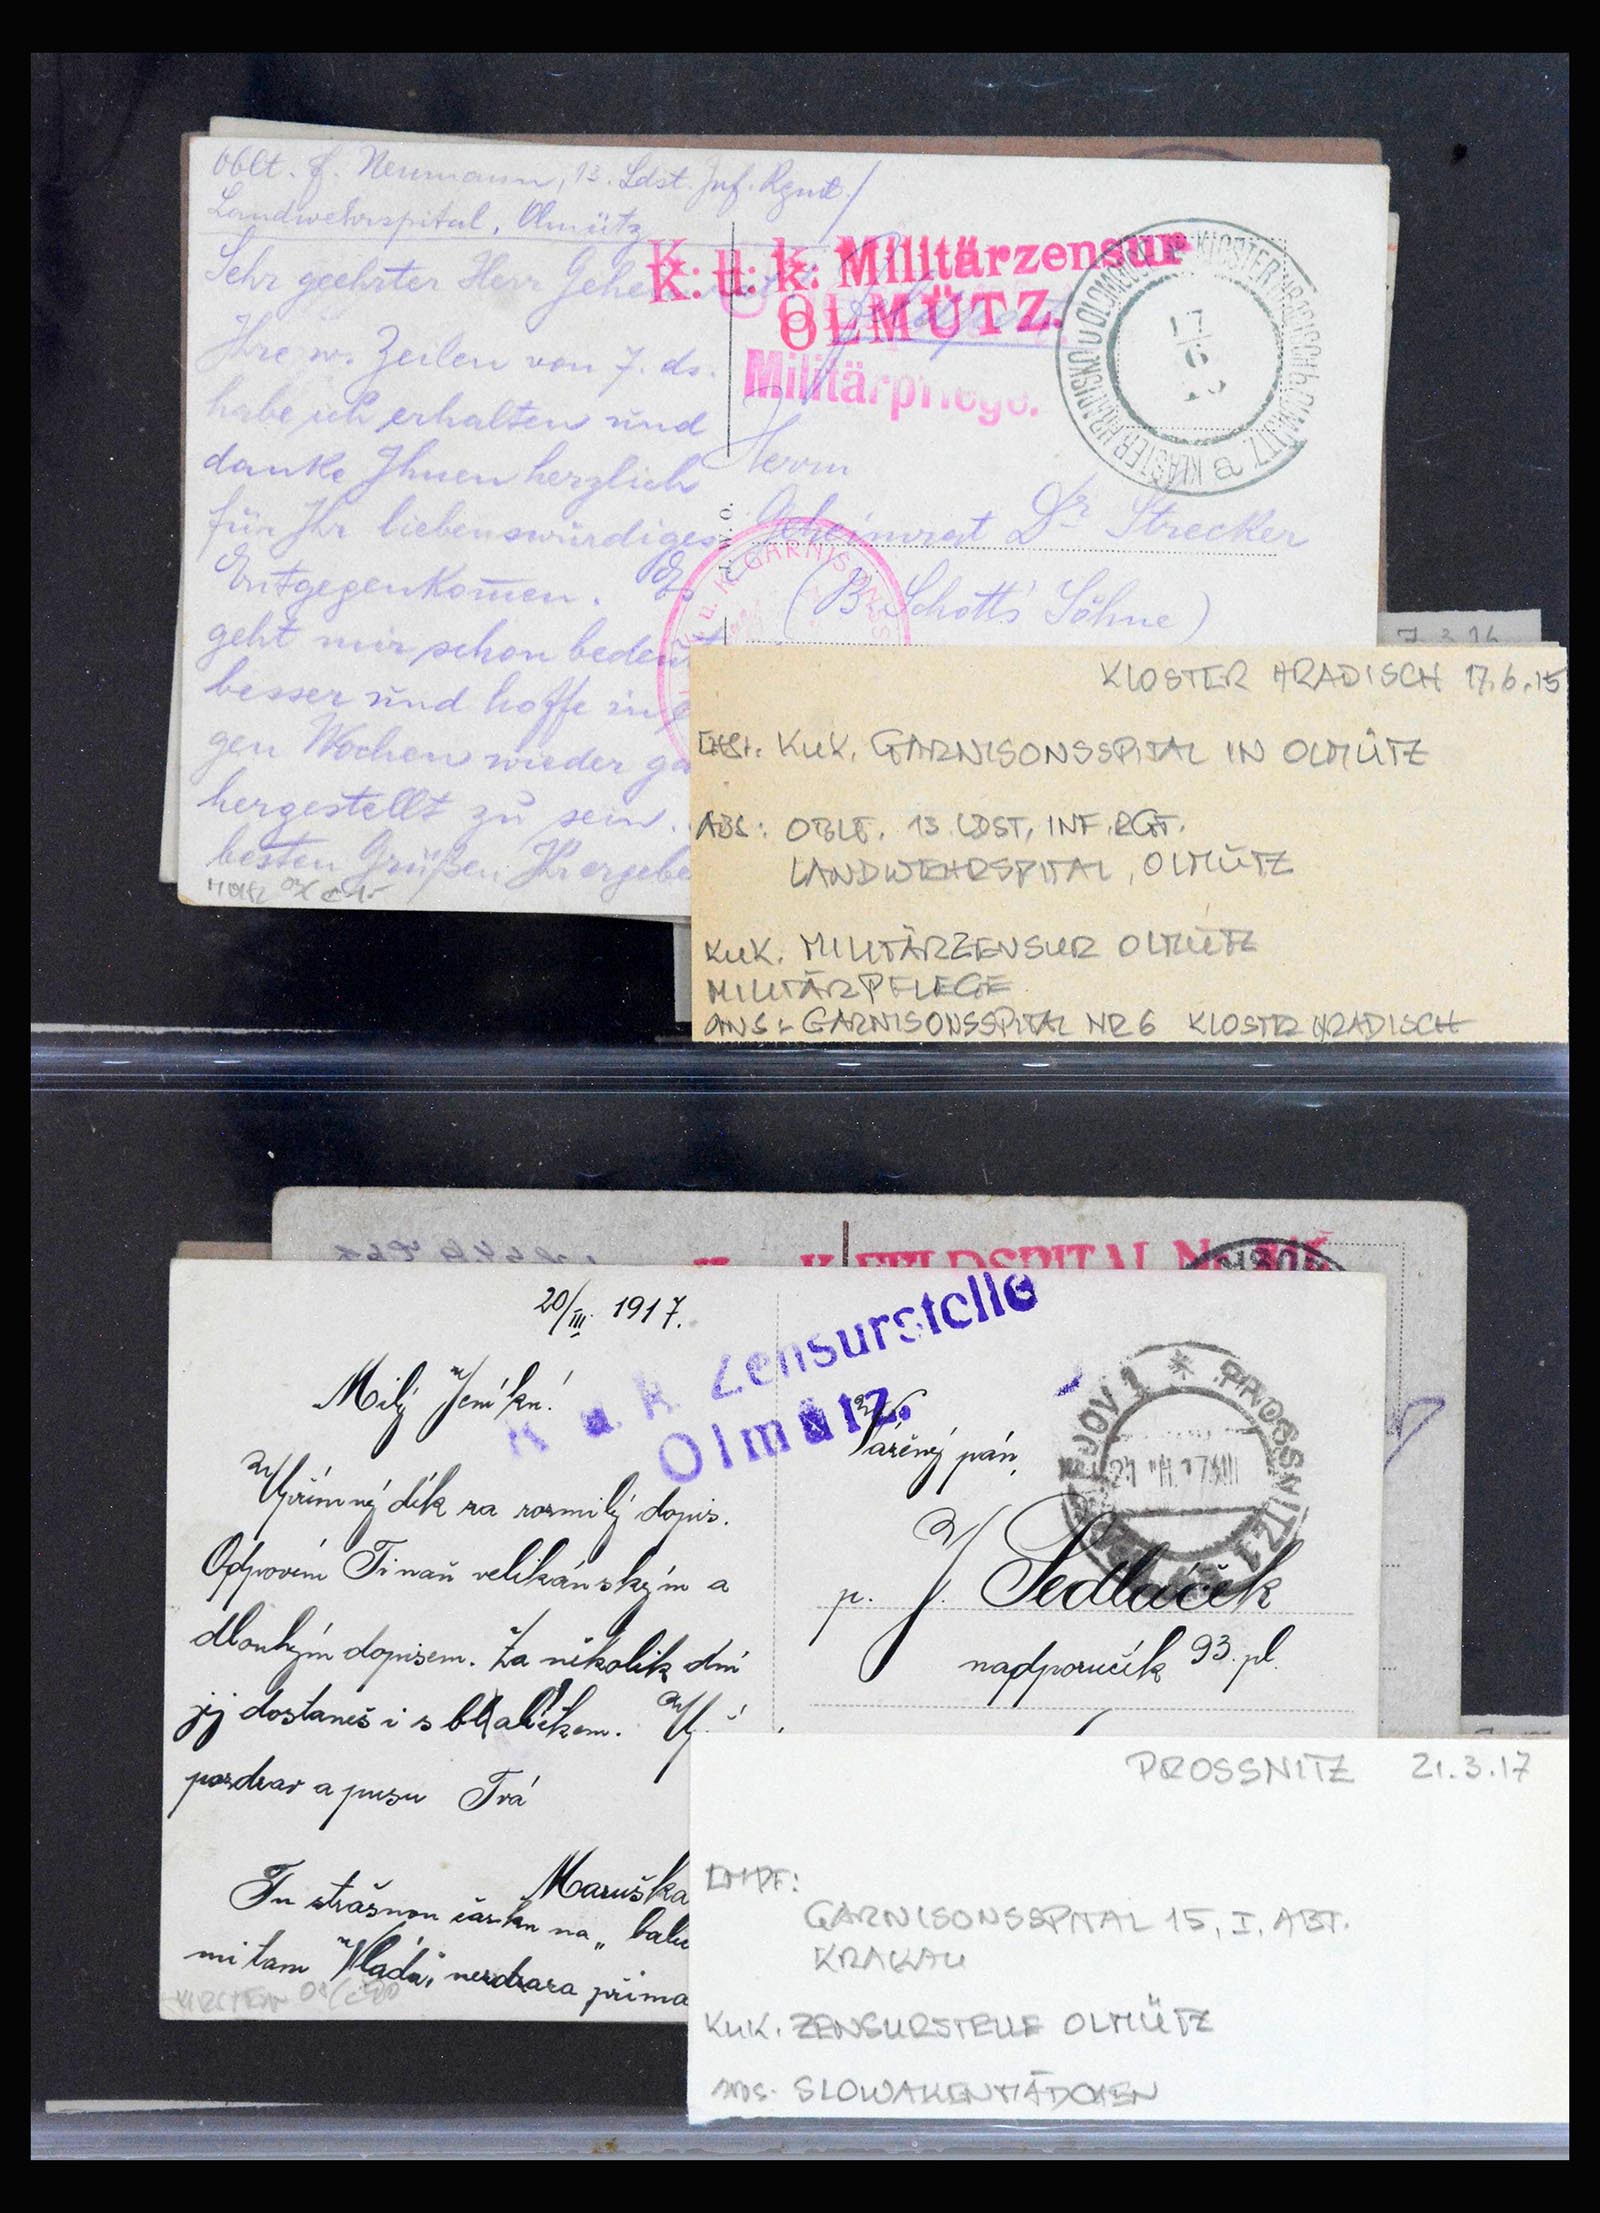 Oblt. F. Neumann, 13. Ldst. Inf. Rgmt./
Landwehrspital, Olmütz
Sehr geehrter Herr Geheimrat!
Ihre w. Zeilen von 7. ds.
habe ich erhalten und
danke Ihnen herzlich
für Ihr liebenswürdiges
Entgegenkom̄en. Es
geht mir schon bedeut
besser und hoffe in
gen Wochen wieder ga
hergestellt zu sein.
besten Grüßen Ihr ergebe
K. u. k. Militärzensur
OLMÜTZ.
Militärpflege.
Feldpost.
KLOSTER HRADISCH b. OLMÜTZ
KLÁŠTER HRADISKO u OLOMOUCE
17
6
15
Herrn
Geheimrat Dr Strecker
(B. Schott's Söhne)
u. K. GARNISONSS
7.3.16
KLOSTER HRADISCH 17.6.15
KuK. GARNISONSSPITAL IN OLMÜTZ
ABS: OBLT. 13. LDST. INF. RGT.
LANDWEHRSPITAL, OLMÜTZ
KuK. MILITÄRZENSUR OLMÜTZ
MILITÄRPFLEGE
ANS: GARNISONSSPITAL NR 6 KLOSTER HRADISCH
K. K. FELDSPITAL Nr.
20/III. 1917.
Milý Jeníku!
Upřímný dík za rozmilý dopis.
Odpovím Ti naň velikánským a
dlouhým dopisem. Za několik dní
jej dostaneš i s balíčkem.
pozdrav a pusu Tvá
Maruška
Tu strašnou čárku na „balí
mi tam Vláďa, nezdvora příma
K. u. k. Zensurstelle
Olmütz.
PROSSNITZ 1
JOV 1
21 III 17
Vážený pán,
p. J. Sedláček
nadporučík 93. pl.
PROSSNITZ 21.3.17
EMPF:
GARNISONSSPITAL 15, I. ABT.
KRAKAU
KuK. ZENSURSTELLE OLMÜTZ
ANS. SLOWAKENMÄDCHEN